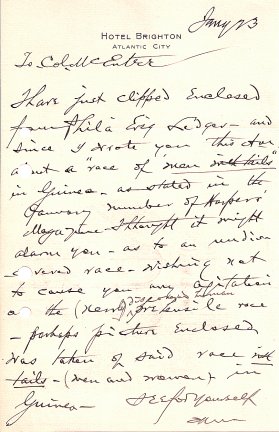 HOTEL BRIGHTON
ATLANTIC CITY
Jany 23
To Col. McEntee
I have just clipped Enclosed
from Phil'a Evig Ledger — and
since I wrote you this
about a "race of men with tails"
in Guinea — as stated in the
January number of Harpers
Magazine I thought it might
alarm you — as to an undis-
covered race — wishing not
to cause you any agitation
discovered human
on the (new) prehensile race
— perhaps picture Enclosed
was taken of said race
tails — (men and women) in
Guinea —
SEE for yourself